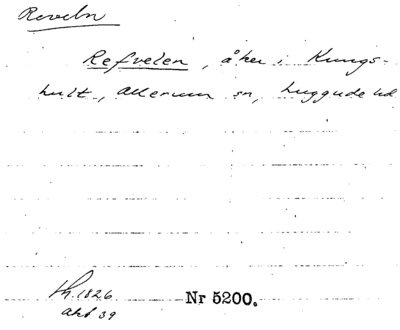 Reveln
Refvelen, åker i Kungs-
hult, Allerum sn, Luggude hd
Lh. 1826
akt 39
Nr 5200.